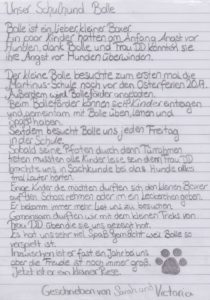 Unser Schulhund Balle
Balle ist ein lieber kleiner Boxer.
Ein paar Kinder hatten am Anfang Angst vor
Hunden, dank Balle und Frau DD konnten sie
ihre Angst vor Hunden überwinden.
Der kleine Balle besuchte zum ersten mal die
Martinus-Schule noch vor den Osterferien 2019.
Außerdem wird Balleföder angeboten.
Beim können sich Kinder eintragen
und gemeinsam mit Balle üben, lernen und
Spaß haben.
Seitdem besucht Balle uns jeden Freitag
in der Schule.
Sobald seine Pfoten durch den Türrahmen
treten mussten alle Kinder leise sein denn Frau DD
brachte uns in Sachkunde bei das Hunde alles
mal lauter hören.
Einige Kinder die mochten durften sich den kleinen Boxer
auf den Schoß nehmen oder im streicheln geben.
Er bekommt immer mehr Lob uns zu besuchen.
Gemeinsam durften wir mit dem kleinen Tricks von
Frau DD üben die sie uns gezeigt hat.
Es hat uns sehr viel Spaß gemacht weil Balle so
verspielt ist.
Inzwischen ist er fast ein Jahr bei uns
aber die Freude ist noch immer groß.
Jetzt ist er ein kleiner Riese.
Geschrieben von Sarah und
Victoria